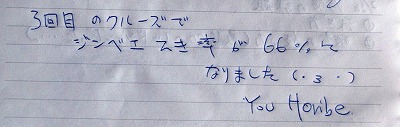 3回目のクルーズで
ジンベエ みき率が 66%に
なりました(・3・)
You Horibe